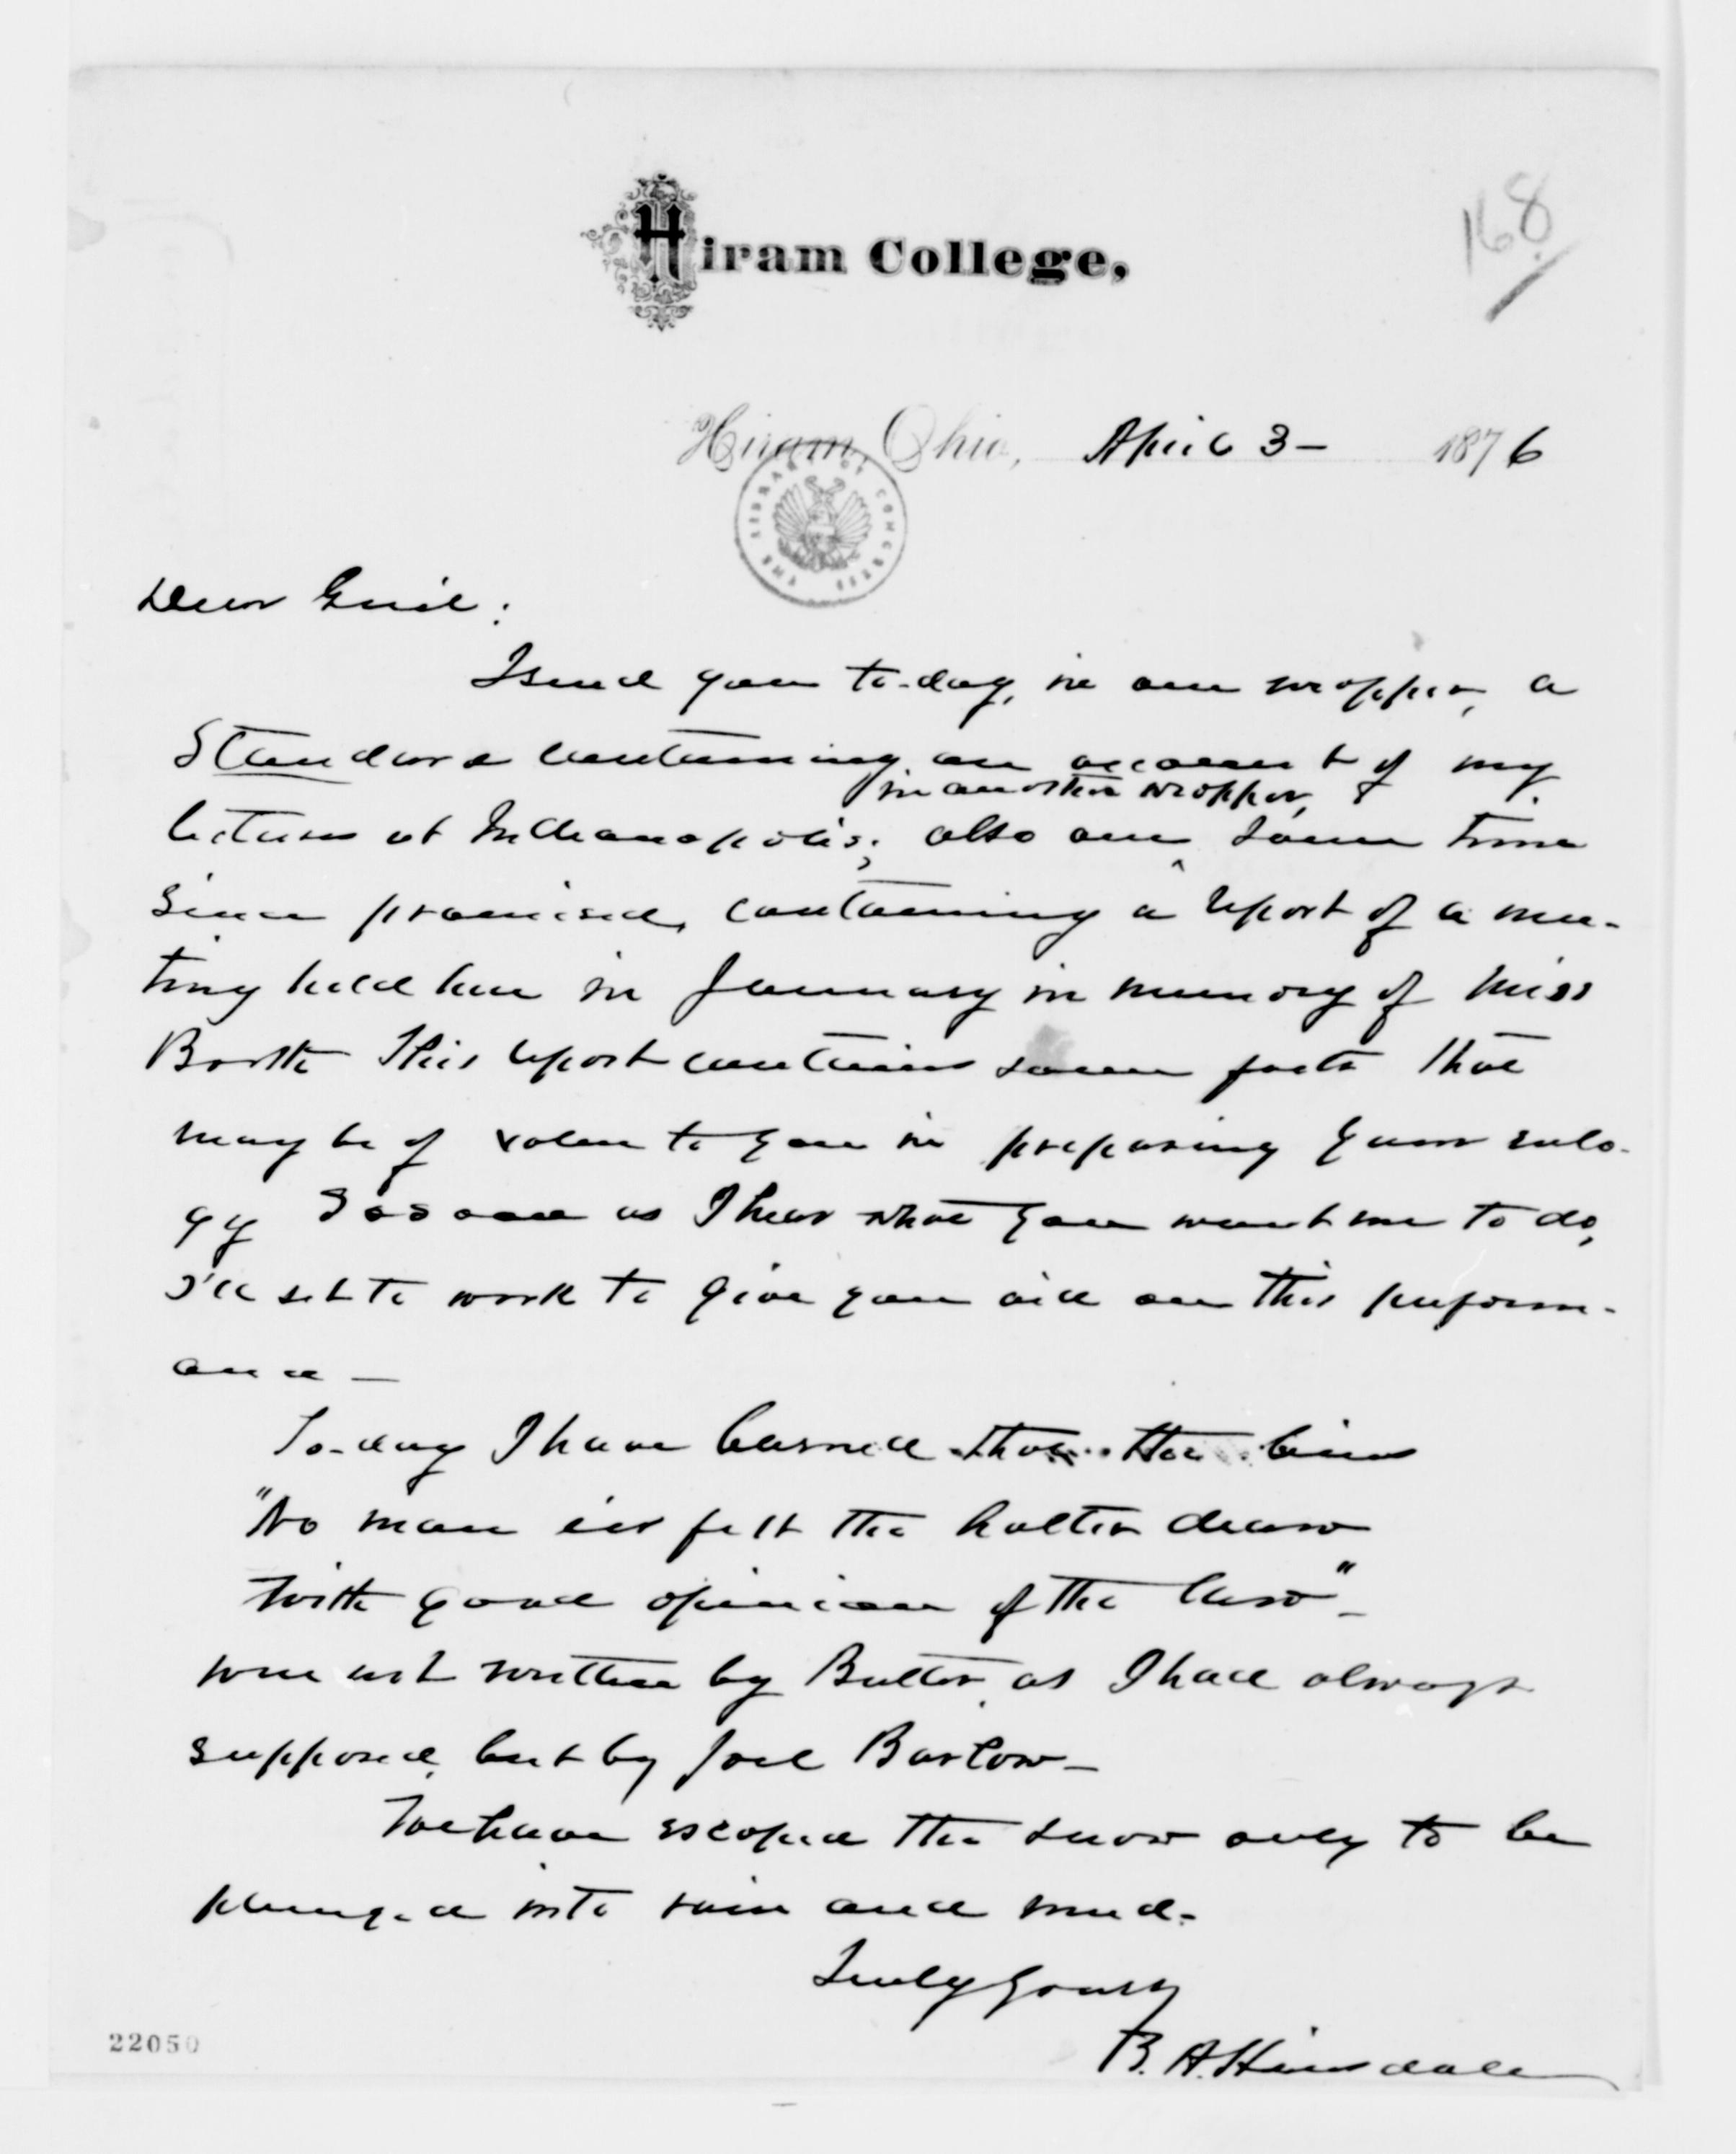 Hiram College,
168
Hiram, Ohio, April 3 – 1876
THE LIBRARY OF CONGRESS
Dear Friend:
I send you to-day, in one wrapper, a
Standard containing an account of my
in another wrapper,
lectures at Indianapolis; also one ^ some time
since promised, containing a report of a mee-
ting held here in January in memory of Miss
Booth This report contains some facts that
may be of value to you in preparing your eulo-
gy So soon as I hear what you want me to do,
I'll set to work to give you aid on this perform-
ance –
To-day I have learned that the lines
"No man e'er felt the halter draw
With good opinion of the law" –
were not written by Butler, as I had always
supposed, but by Joel Barlow –
We have escaped the snow only to be
plunged into rain and mud.
Truly Yours,
B. A. Hinsdale
22050